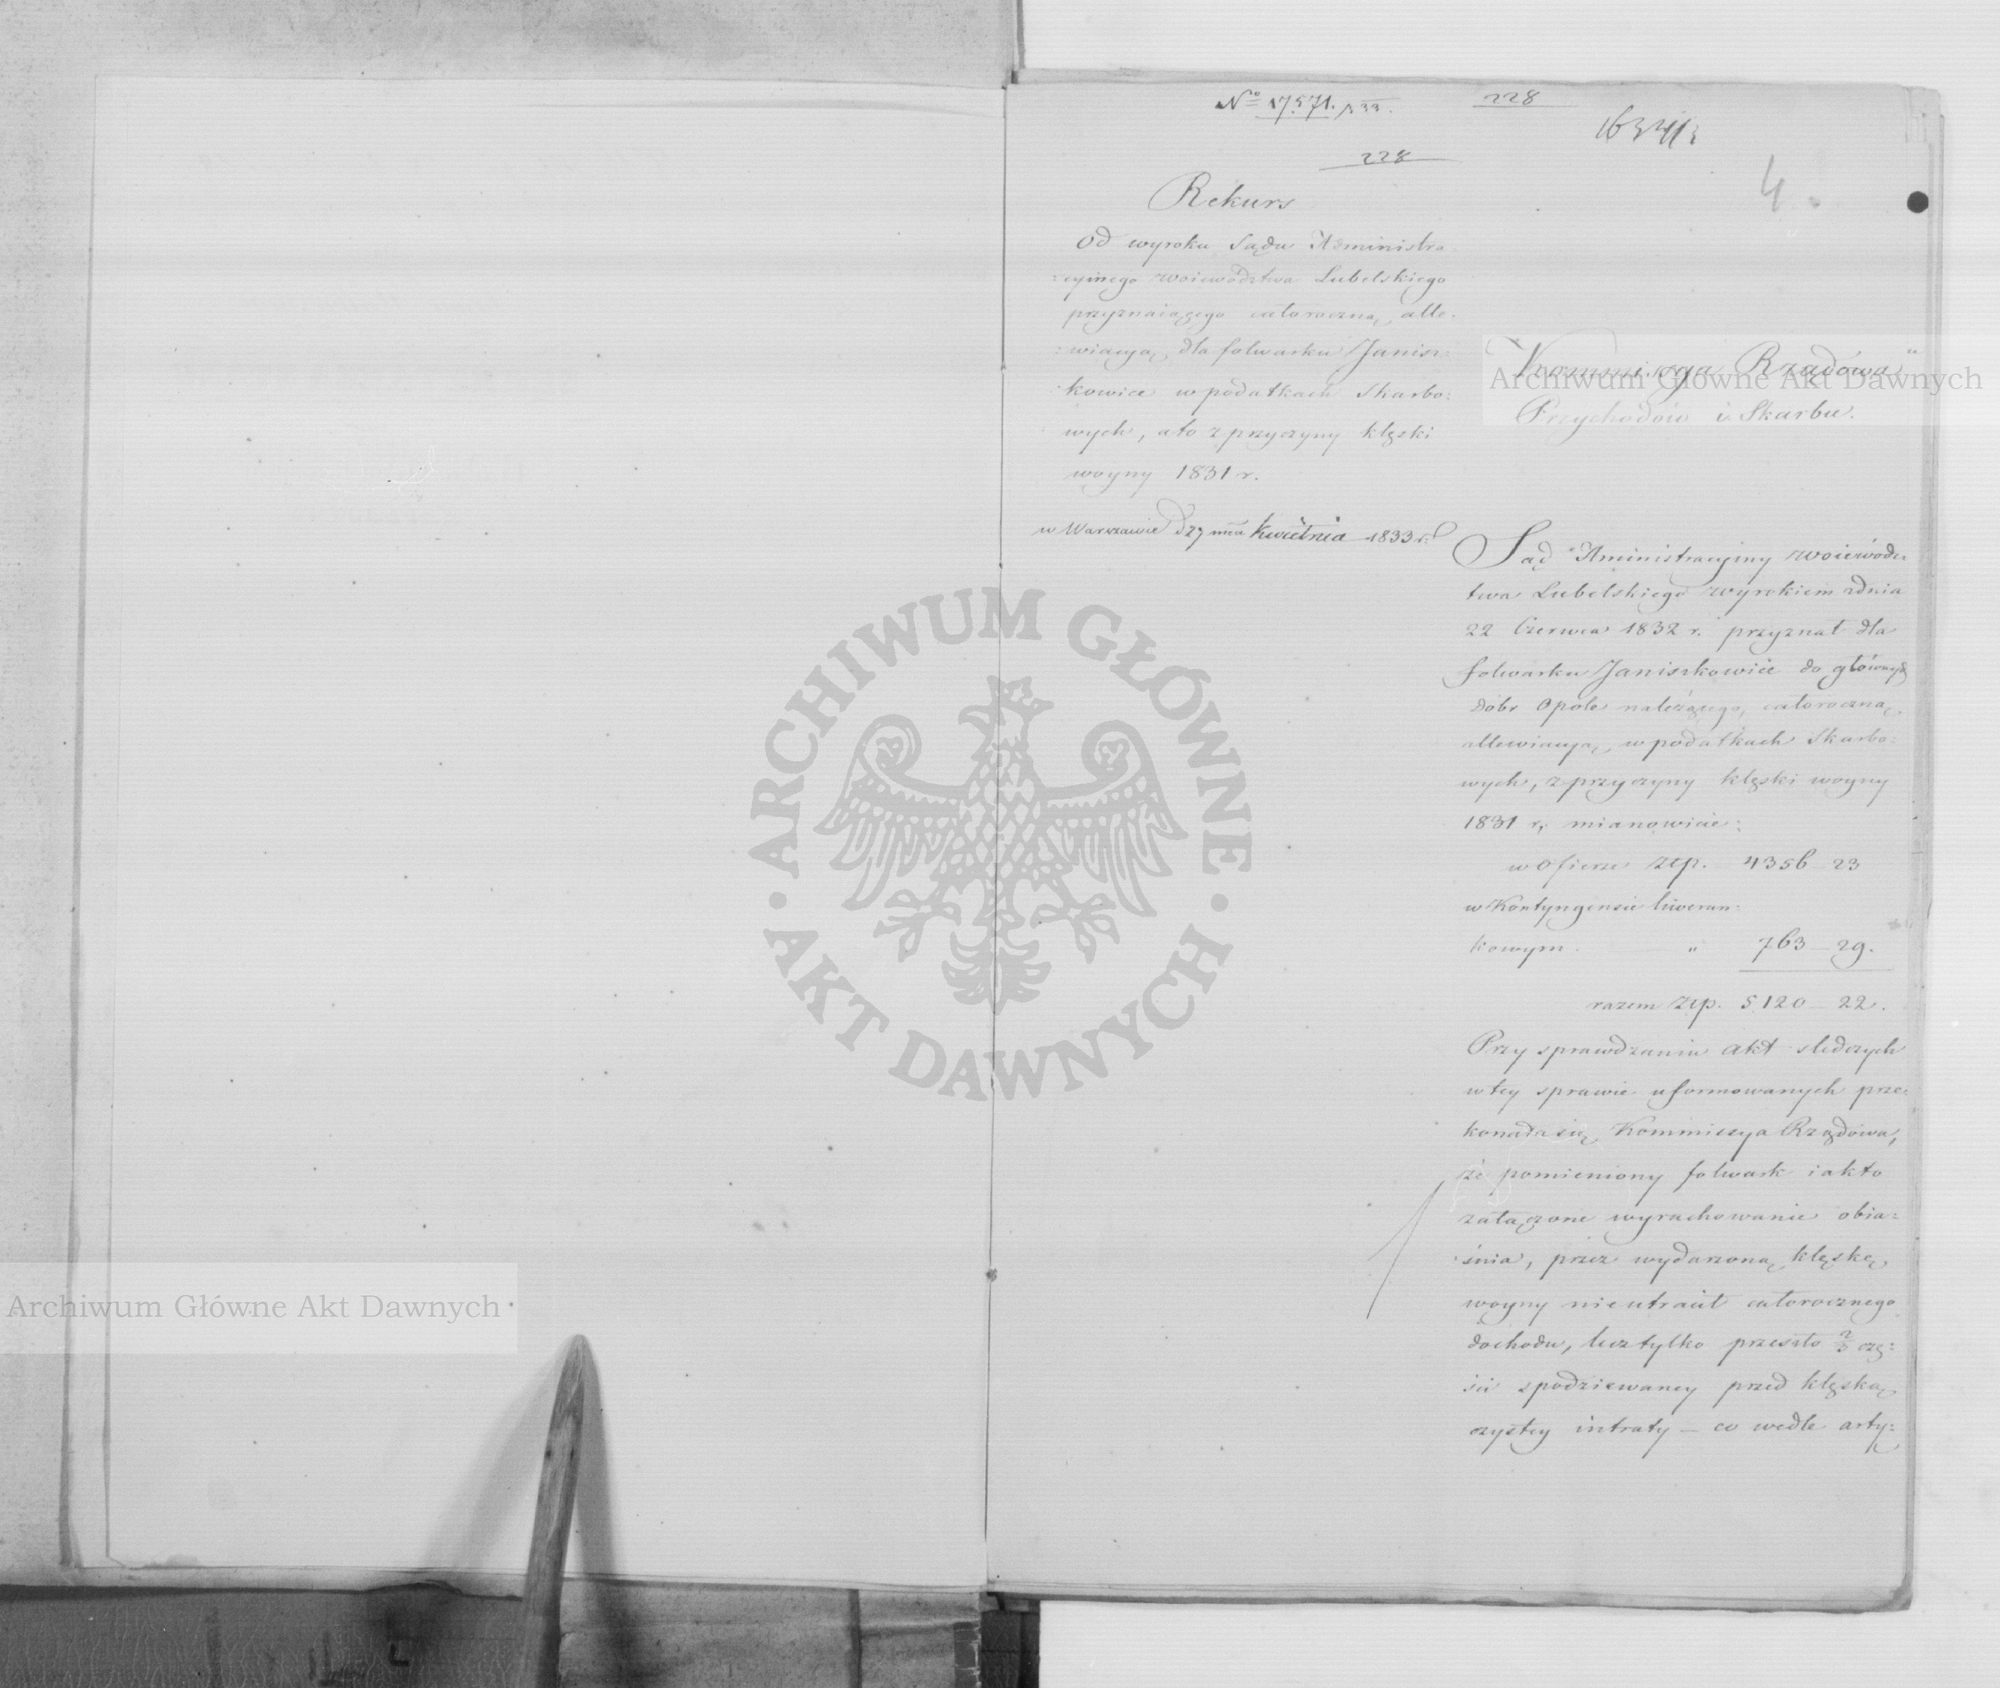 Nº 17571. 833.
228
163411
4.
228
Rekurs
od wyroku Sądu Administra-
:cyinego Woiewództwa Lubelskiego
przyznaiącego całoroczną alle-
:wiacyą dla folwarku Janisz-
kowice w podatkach Skarbo:
wych, a to z przyczyny klęski
woyny 1831 r.
w Warszawie d 27 mca Kwietnia 1833 r.
Kommissya Rządowa
Przychodów i Skarbu.
Sąd Aministracyiny Woiewódz-
twa Lubelskiego wyrokiem z dnia
22 Czerwca 1832 r. przyznał dla
folwarku Janiszkowice do głównych
dóbr Opole należącego, całoroczną
allewiacyą w podatkach Skarbo:
wych, z przyczyny klęski woyny
1831 r, mianowicie:
w Ofierze złp. 4356–23
w Kontyngensie liweran:
kowym „ 763–29.
razem złp. 5120–22.
Przy sprawdzaniu akt sledczych
w tey sprawie uformowanych prze-
konała się Kommissya Rządowa,
że pomieniony folwark iak to
załączone wyrachowanie obia:
śnia, przez wydarzoną klęskę
woyny nieutracił całorocznego
dochodu, lecz tylko przeszło 2/3 czę:
ści spodziewaney przed klęską
czystey intraty – co wedle arty:
ARCHIWUM GŁÓWNE AKT DAWNYCH
Archiwum Główne Akt Dawnych
Archiwum Główne Akt Dawnych